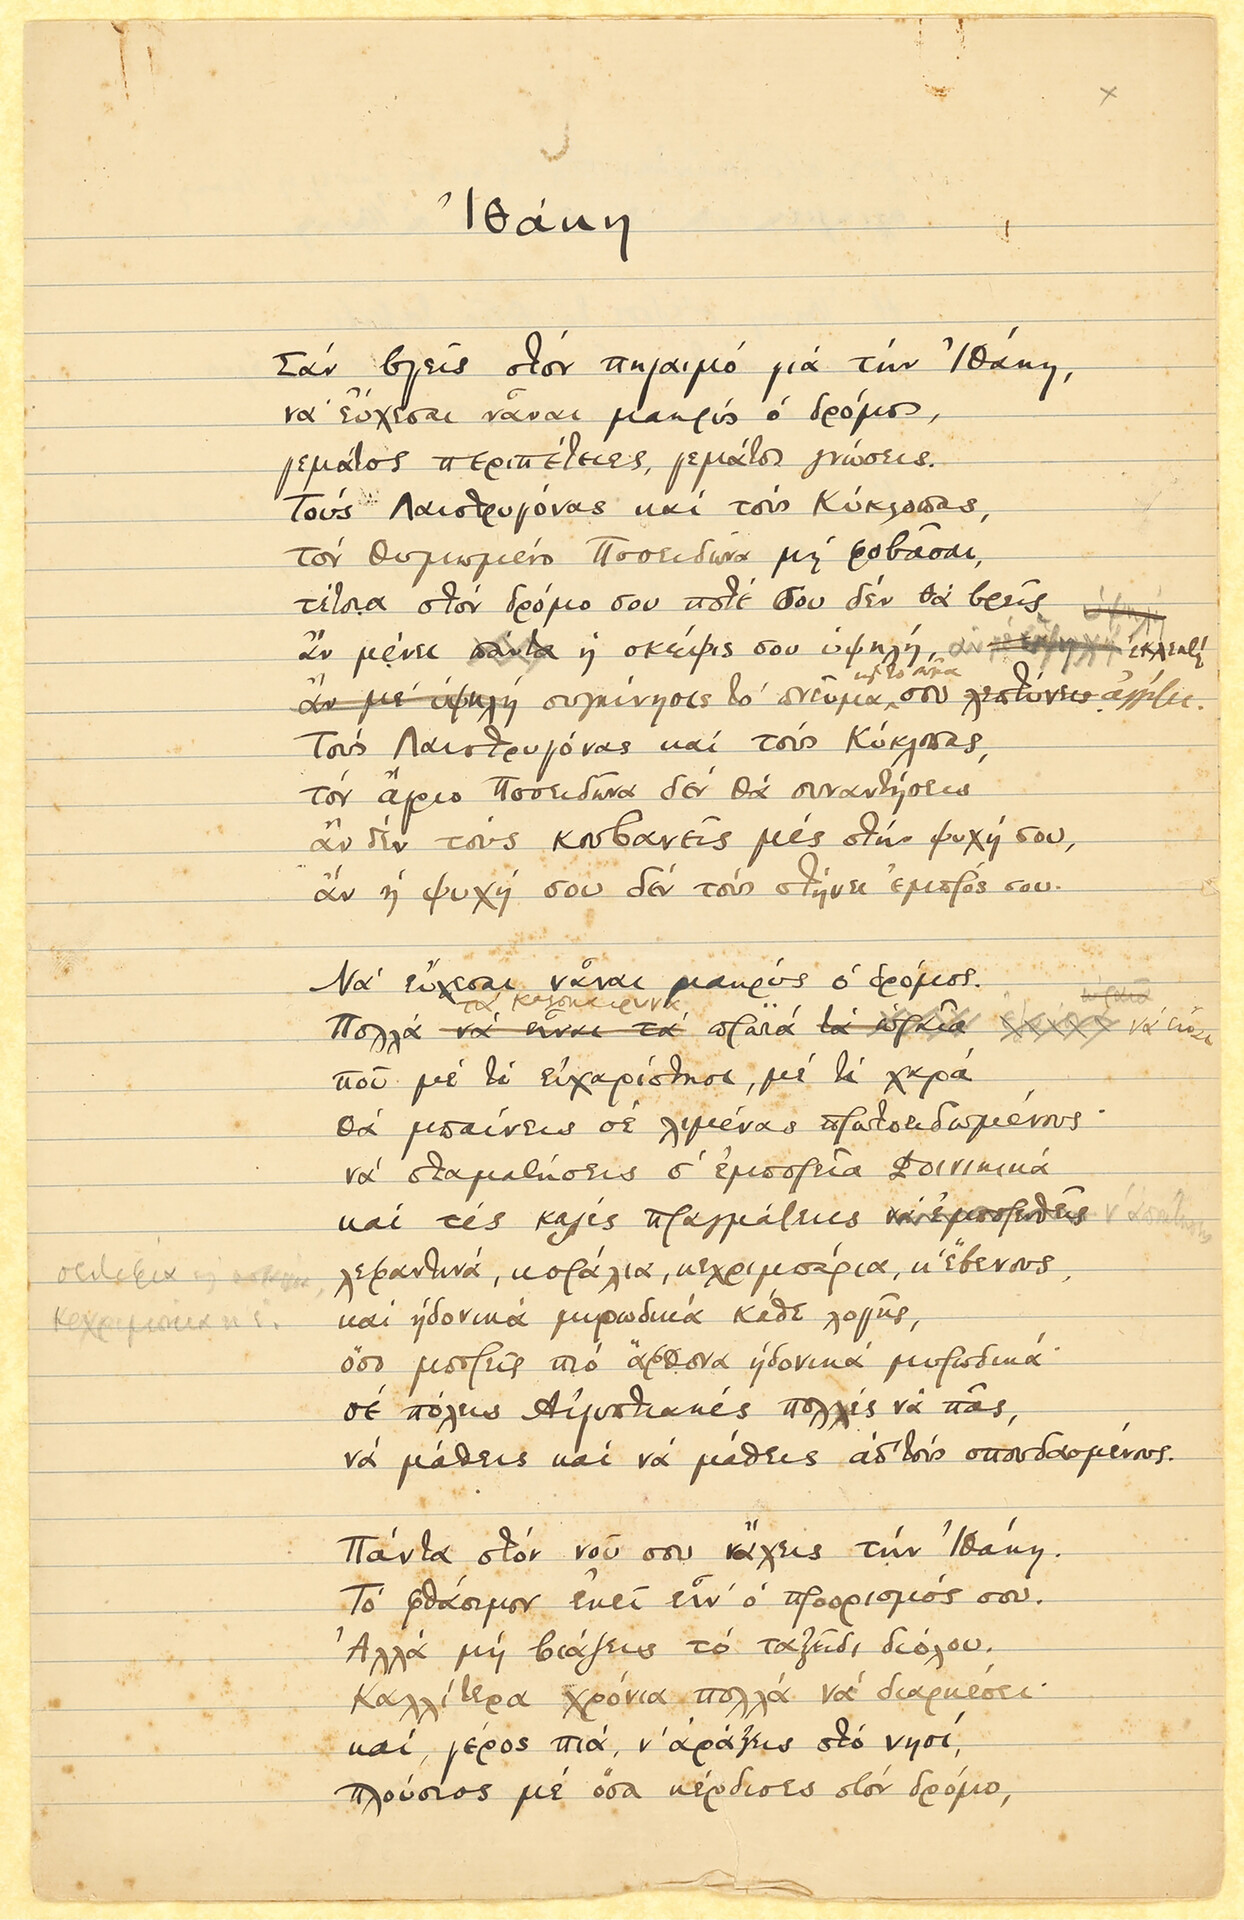 Ἰθάκη
Σάν βγεῖς στόν πηγαιμό γιά τήν Ἰθάκη,
νά εὔχεσαι νἆναι μακρύς ὁ δρόμος,
γεμάτος περιπέτειες, γεμάτος γνώσεις.
Τούς Λαιστρυγόνας καί τούς Κύκλωπας,
τόν θυμωμένο Ποσειδῶνα μή φοβᾶσαι,
τέτοια στόν δρόμο σου ποτέ σου δέν θά βρεῖς
ὑψηλή
ἄν μένει πάντα ἡ σκέψις σου ὑψηλή, ἄν ἐκλεκτή
κὶ τὸ σῶμα
ἄν μέ ὑψηλή συγκίνησις τό πνεῦμα σου λεπτύνεις ἀγγίζει.
Τούς Λαιστρυγόνας καί τούς Κύκλωπας,
τόν ἄγριο Ποσειδῶνα δέν θά συναντήσεις
ἄν δέν τούς κουβανεῖς μές στήν ψυχή σου,
ἄν ἡ ψυχή σου δέν τούς στήνει ἐμπρός σου.
Νά εὔχεσαι νἆναι μακρύς ὁ δρόμος.
τά καλοκαιρινά
Πολλά νά εἶναι τά πρωϊά τά ὡραῖα νά εἶναι
πού μέ τί εὐχαρίστησι, μέ τί χαρά
θά μπαίνεις σέ λιμένας πρωτοειδωμένους·
νά σταματήσεις σ' ἐμπορεῖα Φοινικικά
καί τές καλές πραγμάτειες νά ἐμπορευθεῖς ν' ἀποκτήσεις
σεντέφια κεχριμπάρια κ' ἔ.
λεφαντινά, κοράλια, κεχριμπάρια, κ' ἔβενους,
καί ἡδονικά μυρωδικά κάθε λογῆς,
ὅσο μπορεῖς πιό ἄφθονα ἡδονικά μυρωδικά·
σέ πόλεις Αἰγυπτιακές πολλές νά πᾶς,
νά μάθεις καί νά μάθεις ἀπ' τούς σπουδασμένους.
Πάντα στόν νοῦ σου νἄχεις τήν Ἰθάκη.
Τό φθάσιμον ἐκεῖ εἶν' ὁ προορισμός σου.
Ἀλλά μή βιάζεις τό ταξεῖδι διόλου.
Καλλίτερα χρόνια πολλά νά διαρκέσει·
καί, γέρος πιά, ν' ἀράξεις στό νησί,
πλούσιος μέ ὅσα κέρδισες στόν δρόμο,